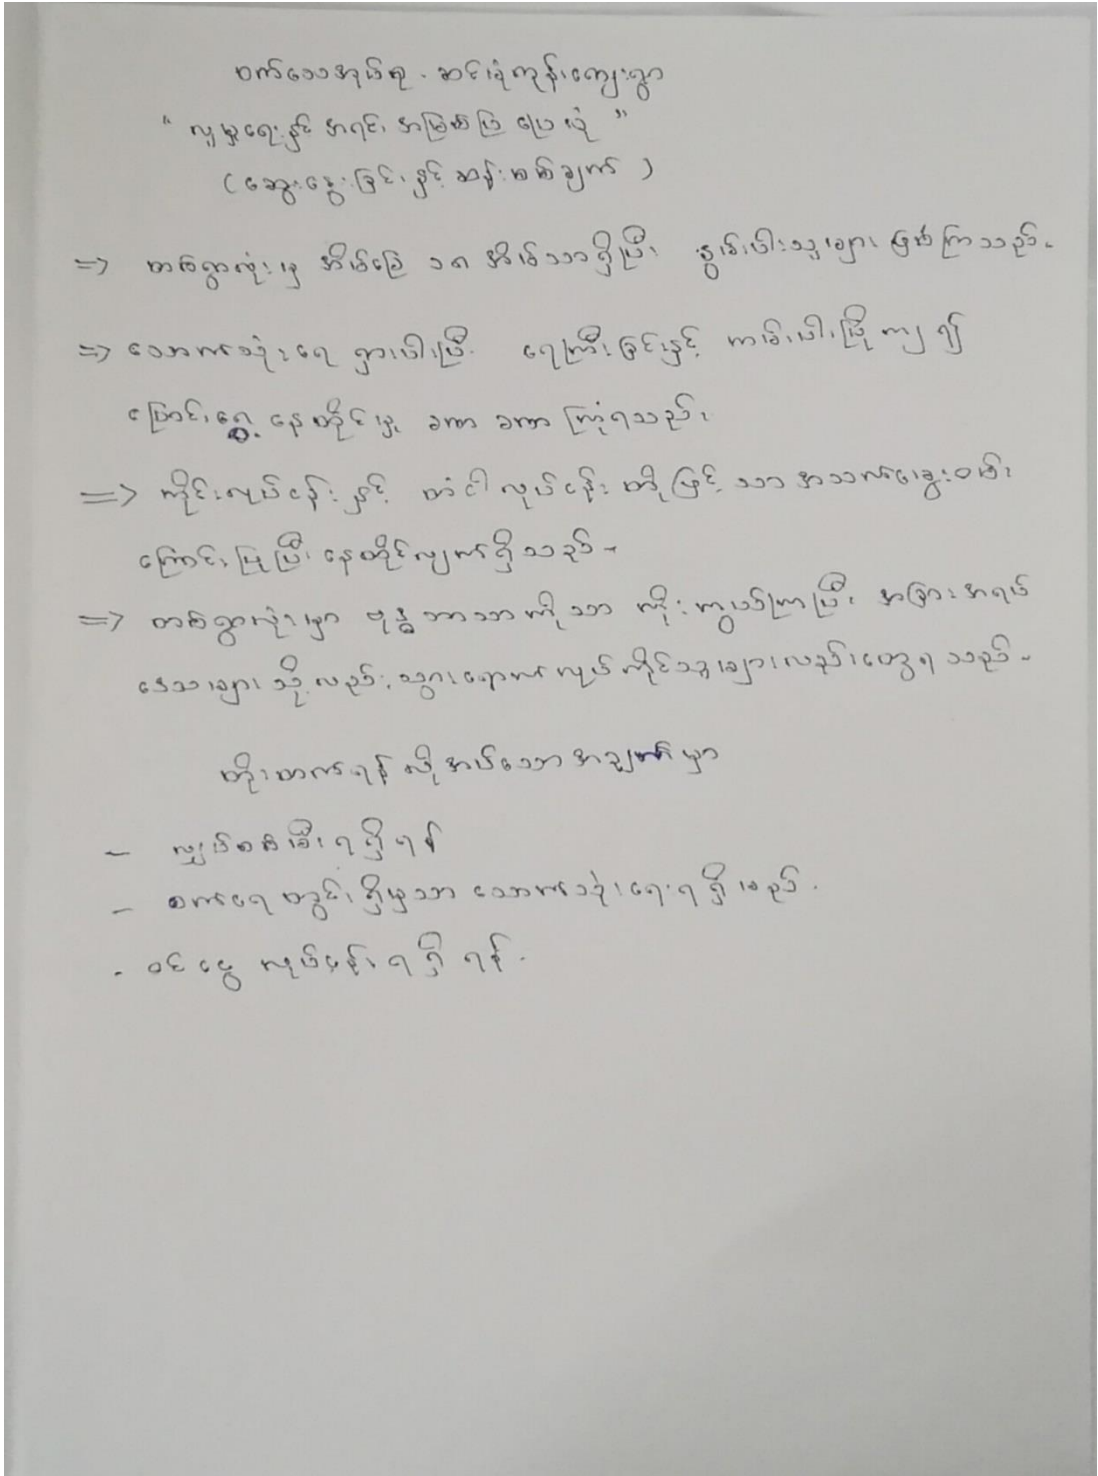 ဝက်သေအုပ်စု - ဆင်ခုံကုန်းကျေးရွာ
" လူမှုရေးနှင့် အရင်းအမြစ်ပြ မြေပုံ "
( ဆွေးနွေးခြင်းနှင့် ဆန်းစစ်ချက် )
=> တစ်ရွာလုံးမှ အိမ်ခြေ ၁၈ အိမ်သာရှိပြီး နွမ်းပါးသူများ ဖြစ်ကြသည်။
=> သောက်သုံးရေ ရှားပါးပြီး ရေကြီးခြင်းနှင့် ကမ်းပါးပြိုကျ၍
ပြောင်းရွှေ့ နေထိုင်မှု ခဏ ခဏ ကြုံရသည်။
=> ကိုင်းလုပ်ငန်းနှင့် တံငါလုပ်ငန်း တို့ဖြင့်သာ အသက်မွေးဝမ်း
ကြောင်းပြုပြီး နေထိုင်လျက်ရှိသည်။
=> တစ်ရွာလုံးမှာ ဗုဒ္ဓဘာသာကိုသာ ကိုးကွယ်ကြပြီး အခြားအရပ်
ဒေသများသို့လည်း သွားရောက်လုပ်ကိုင်သူများလည်းတွေ့ရသည်။
တိုးတက်ရန် လိုအပ်သောအချက်မှာ
- လျှပ်စစ်မီးရရှိရန်
- စက်ရေတွင်းရှိမှသာ သောက်သုံးရေရရှိမည်။
- ဝင်ငွေ လုပ်ငန်းရရှိရန်။